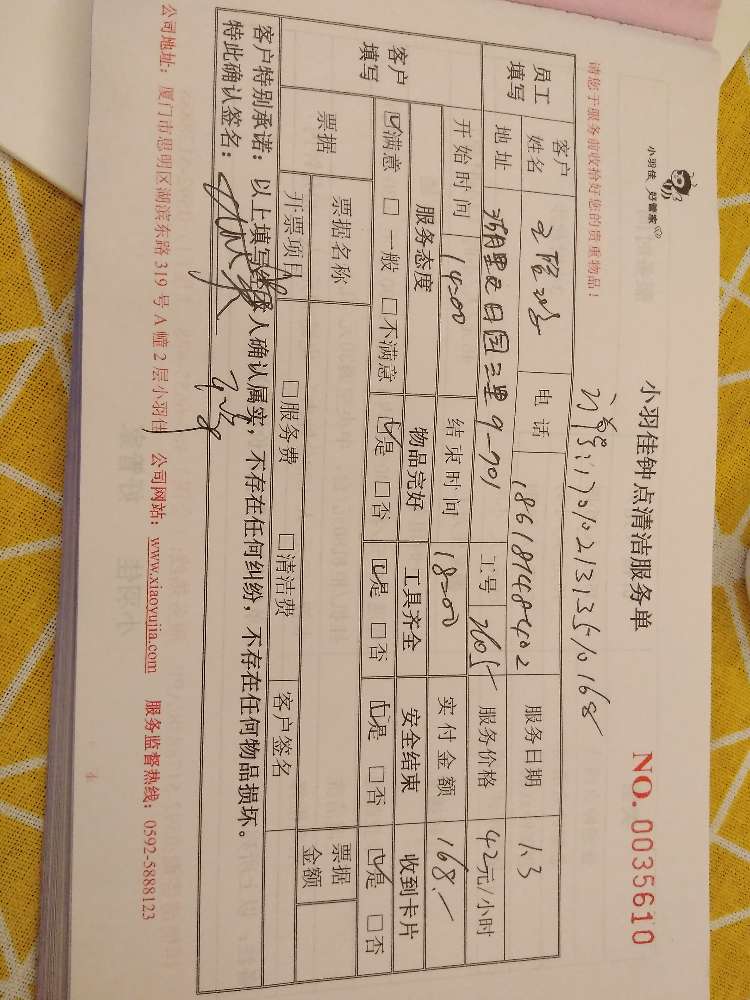 小羽佳 好管家
小羽佳钟点清洁服务单
NO. 0035610
请您于服务前收拾好您的贵重物品！
员工填写 客户姓名 电话 18618148402 服务日期 1.3
地址 二里9-901 工号 2605 服务价格 42元/小时
开始时间 14:00 结束时间 18:00 实付金额 168.-
客户填写 服务态度 物品完好 工具齐全 安全结束 收到卡片
☑满意 □一般 □不满意 ☑是 □否 ☑是 □否 ☑是 □否 ☑是 □否
票据 票据名称 票据金额
开票项目 □服务费 □清洁费 客户签名
客户特别承诺：以上填写经本人确认属实，不存在任何纠纷，不存在任何物品损坏。
特此确认签名：
公司地址：厦门市思明区湖滨东路319号A幢2层小羽佳 公司网站：www.xiaoyujia.com 服务监督热线：0592-5888123